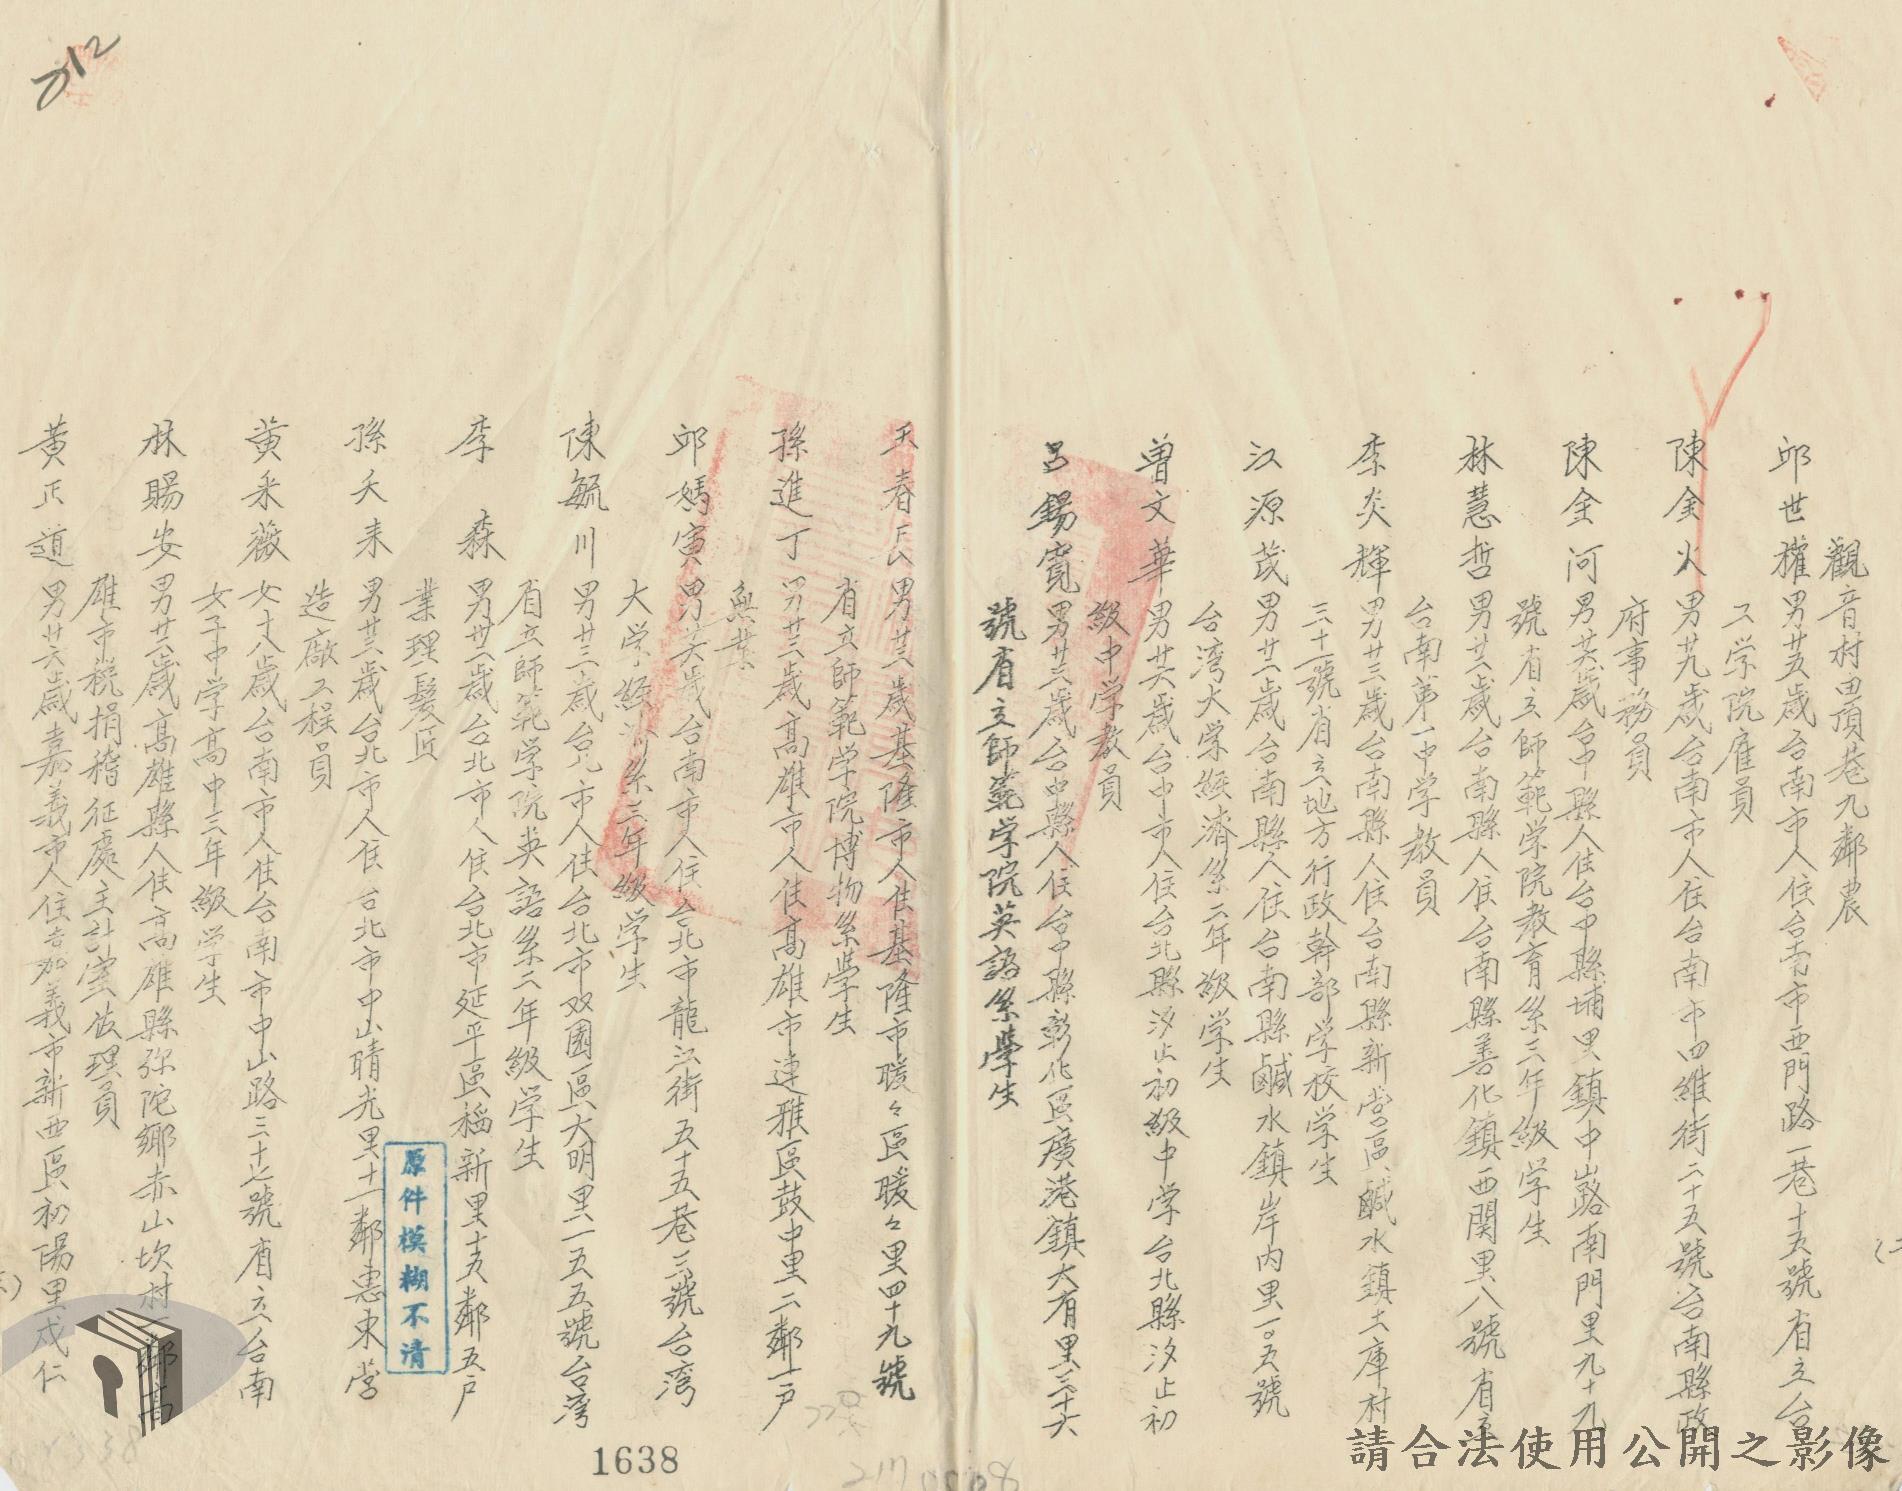 觀音村田頂巷九鄰農
邱世權男廿五歲台南市人住台南市西門路一巷十五號省立台
工学院雇員
陳金火男廿九歲台南市人住台南市四維街二十五號台南縣政
府事務員
陳金河男廿八歲台中縣人住台中縣埔里鎮中山路南門里九十九
號省立師範学院教育系三年級学生
林慧哲男廿二歲台南縣人住台南縣善化鎮西関里八號省立
台南第一中学教員
李炎輝男廿三歲台南縣人住台南縣新営區鹹水鎮土庫村
三十一號省立地方行政幹部学校学生
江源茂男廿二歲台南縣人住台南縣鹹水鎮岸内里一〇五號
台湾大学経濟系二年級学生
曽文華男廿六歲台中市人住台北縣汐止初級中学台北縣汐止初
級中学教員
呂錫寬男廿三歲台中縣人住台中縣彰化區廣港鎮大有里三十六
號省立師範学院英語系學生
王春長男廿三歲基隆市人住基隆市暖々區暖々里四十九號
省立師範学院博物系學生
孫進丁男廿三歲高雄市人住高雄市連雅區鼓中里二鄰一户
無業
邱媽寅男廿六歲台南市人住台北市龍江街五十五巷三號台湾
大学経濟系三年級学生
陳毓川男廿三歲台北市人住台北市双園區大明里一五五號台湾
省立師範学院英語系二年級学生
李森男廿二歲台北市人住台北市延平區稻新里十五鄰五户
業理髮匠
孫夭来男廿三歲台北市人住台北市中山晴光里十一鄰惠東営
造廠工程員
黄采薇女十八歲台南市人住台南市中山路三十七號省立台南
女子中学高中三年級学生
林賜安男廿二歲高雄縣人住高雄縣弥陀鄉赤山坎村一鄰高
雄市税捐稽征處主計室佐理員
黄正道男廿六歲嘉義市人住嘉義市新西區初陽里成仁
原件模糊不清
1638
212
217
請合法使用公開之影像